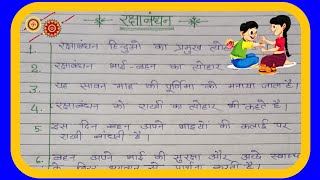 रक्षाबंधन
1. रक्षाबंधन हिन्दुओ का प्रमुख त्यो
2. रक्षाबंधन भाई-बहन का त्योहार
3. यह सावन माह की पूर्णिमा को मनाया जाता है।
4. रक्षाबंधन को राखी का त्योहार भी कहते है।
5 इस दिन बहन अपने भाइयों की कलाई पर
राखी बांधती है।
6. बहन अपने भाई की सुरक्षा और अच्छे स्वास्थ
के लिए भगवान से प्रार्थना करती है।